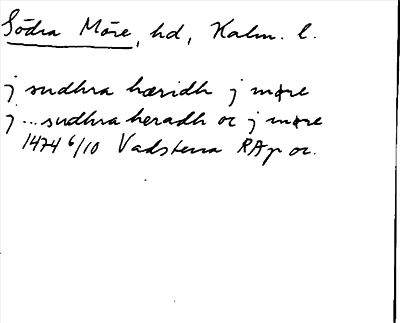 Södra Möre, hd, Kalm. l.
j sudhra hæridh j møre
j ... sudhra heradh oc j møre
1474 6/10 Vadstena RAp or.